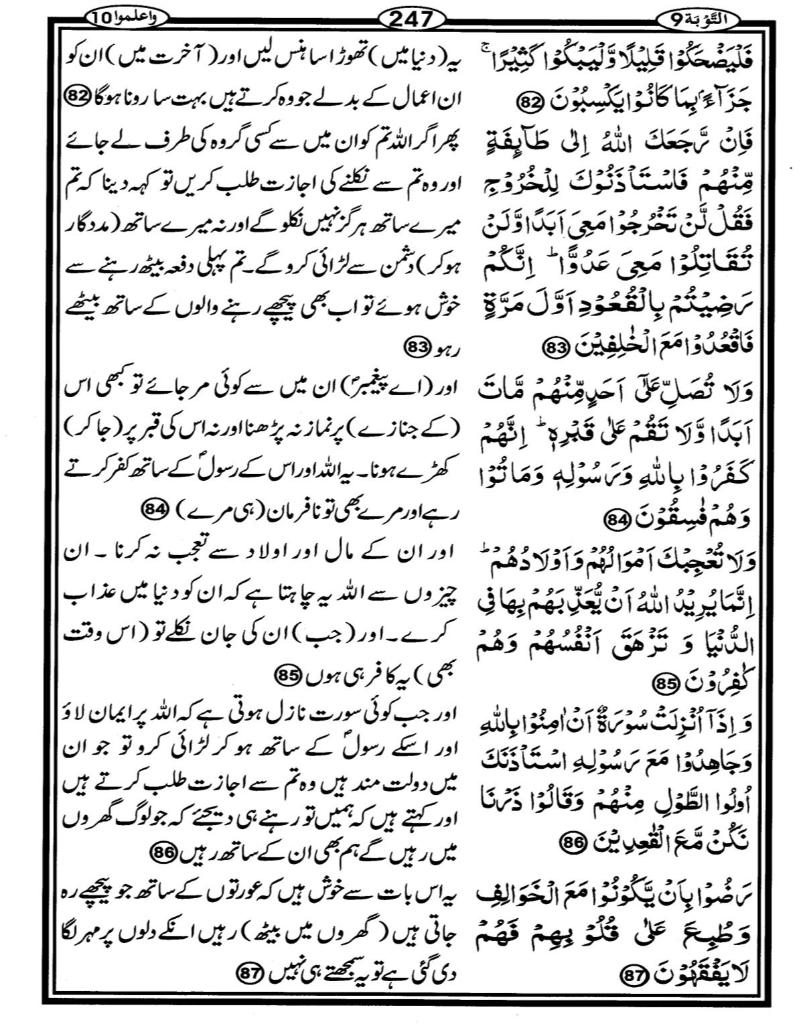 التَّوْبَة 9
247
واعلموا 10
فَلْيَضْحَكُوْا قَلِيْلًا وَّلْيَبْكُوْا كَثِيْرًا ۚ
جَزَآءًۢ بِمَا كَانُوْا يَكْسِبُوْنَ 82
فَاِنْ رَّجَعَكَ اللّٰهُ اِلٰى طَآىِٕفَةٍ
مِّنْهُمْ فَاسْتَاْذَنُوْكَ لِلْخُرُوْجِ
فَقُلْ لَّنْ تَخْرُجُوْا مَعِىَ اَبَدًا وَّلَنْ
تُقَاتِلُوْا مَعِىَ عَدُوًّا ؕ اِنَّكُمْ
رَضِيْتُمْ بِالْقُعُوْدِ اَوَّلَ مَرَّةٍ
فَاقْعُدُوْا مَعَ الْخٰلِفِيْنَ 83
وَلَا تُصَلِّ عَلٰٓى اَحَدٍ مِّنْهُمْ مَّاتَ
اَبَدًا وَّلَا تَقُمْ عَلٰى قَبْرِهٖ ؕ اِنَّهُمْ
كَفَرُوْا بِاللّٰهِ وَرَسُوْلِهٖ وَمَاتُوْا
وَهُمْ فٰسِقُوْنَ 84
وَلَا تُعْجِبْكَ اَمْوَالُهُمْ وَاَوْلَادُهُمْ ؕ
اِنَّمَا يُرِيْدُ اللّٰهُ اَنْ يُّعَذِّبَهُمْ بِهَا فِى
الدُّنْيَا وَ تَزْهَقَ اَنْفُسُهُمْ وَهُمْ
كٰفِرُوْنَ 85
وَاِذَآ اُنْزِلَتْ سُوْرَةٌ اَنْ اٰمِنُوْا بِاللّٰهِ
وَجَاهِدُوْا مَعَ رَسُوْلِهِ اسْتَاْذَنَكَ
اُولُوا الطَّوْلِ مِنْهُمْ وَقَالُوْا ذَرْنَا
نَكُنْ مَّعَ الْقٰعِدِيْنَ 86
رَضُوْا بِاَنْ يَّكُوْنُوْا مَعَ الْخَوَالِفِ
وَطُبِعَ عَلٰى قُلُوْبِهِمْ فَهُمْ
لَا يَفْقَهُوْنَ 87
یہ (دنیا میں) تھوڑا سا ہنس لیں اور (آخرت میں) ان کو
ان اعمال کے بدلے جو وہ کرتے ہیں بہت سا رونا ہوگا 82
پھر اگر اللہ تم کو ان میں سے کسی گروہ کی طرف لے جائے
اور وہ تم سے نکلنے کی اجازت طلب کریں تو کہہ دینا کہ تم
میرے ساتھ ہرگز نہیں نکلو گے اور نہ میرے ساتھ (مددگار
ہوکر) دشمن سے لڑائی کرو گے۔ تم پہلی دفعہ بیٹھ رہنے سے
خوش ہوئے تو اب بھی پیچھے رہنے والوں کے ساتھ بیٹھے
رہو 83
اور (اے پیغمبرؐ) ان میں سے کوئی مر جائے تو کبھی اس
(کے جنازے) پر نماز نہ پڑھنا اور نہ اس کی قبر پر (جا کر)
کھڑے ہونا۔ یہ اللہ اور اس کے رسولؐ کے ساتھ کفر کرتے
رہے اور مرے بھی تو نافرمان (ہی مرے) 84
اور ان کے مال اور اولاد سے تعجب نہ کرنا ۔ ان
چیزوں سے اللہ یہ چاہتا ہے کہ ان کو دنیا میں عذاب
کرے۔ اور (جب) ان کی جان نکلے تو (اس وقت
بھی) یہ کافر ہی ہوں 85
اور جب کوئی سورت نازل ہوتی ہے کہ اللہ پر ایمان لاؤ
اور اسکے رسولؐ کے ساتھ ہو کر لڑائی کرو تو جو ان
میں دولت مند ہیں وہ تم سے اجازت طلب کرتے ہیں
اور کہتے ہیں کہ ہمیں تو رہنے ہی دیجئے کہ جو لوگ گھروں
میں رہیں گے ہم بھی ان کے ساتھ رہیں 86
یہ اس بات سے خوش ہیں کہ عورتوں کے ساتھ جو پیچھے رہ
جاتی ہیں (گھروں میں بیٹھ) رہیں انکے دلوں پر مہر لگا
دی گئی ہے تو یہ سمجھتے ہی نہیں 87